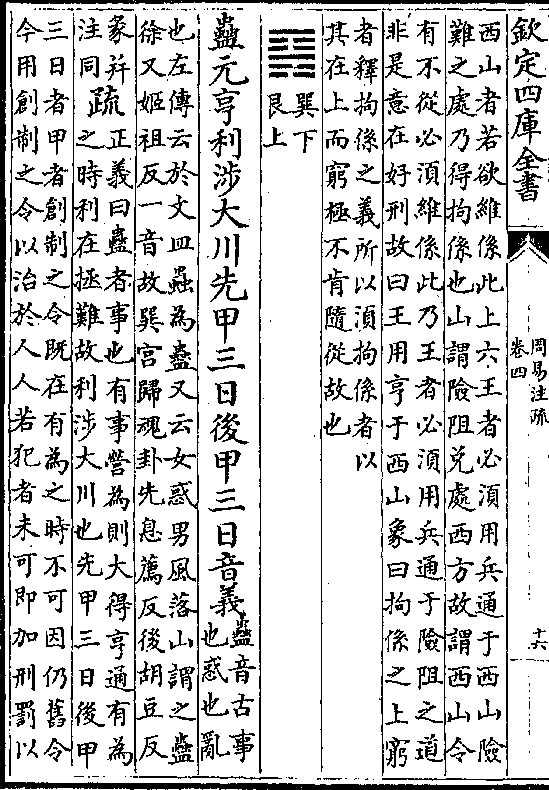 欽定四庫全書
周易注疏
卷四
十六
西山者若欲維係此上六王者必須用兵通于西山險
難之處乃得拘係也山謂險阻兌處西方故謂西山令
有不從必須維係此乃王者必須用兵通于險阻之道
非是意在好刑故曰王用亨于西山象曰拘係之上窮
者釋拘係之義所以須拘係者以
其在上而窮極不肯隨從故也
䷑
巽下
艮上
蠱元亨利涉大川先甲三日後甲三日音義
蠱音古事
也惑也亂
也左傳云於文皿蟲為蠱又云女惑男風落山謂之蠱
徐又姬祖反一音故巽宮歸魂卦先息薦反後胡豆反
彖并
注同
疏
正義曰蠱者事也有事營為則大得亨通有為
之時利在拯難故利涉大川也先甲三日後甲
三日者甲者創制之令既在有為之時不可因仍舊令
今用創制之令以治於人人若犯者未可即加刑罰以